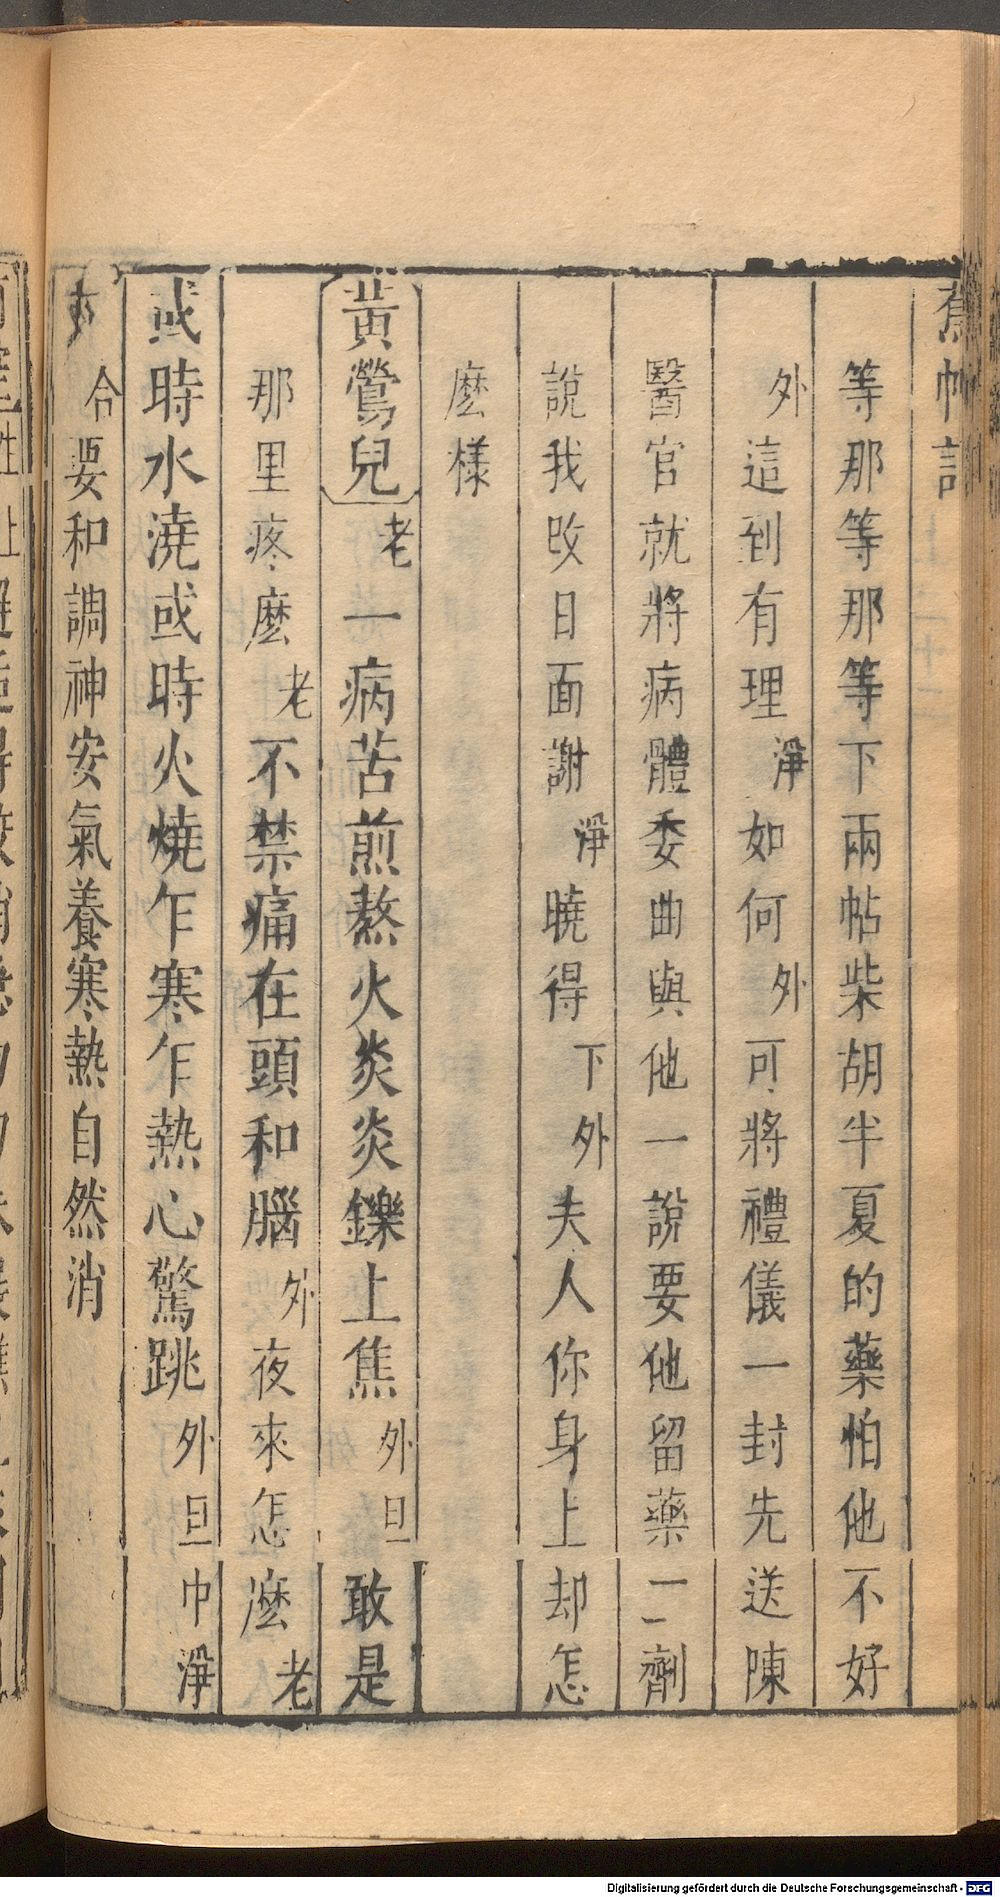 蕉帕記
等那等那等下兩帖柴胡半夏的藥怕他不好
外這到有理淨如何外可將禮儀一封先送陳
醫官就將病體委曲與他一說要他留藥一二劑
說我改日面謝淨曉得下外夫人你身上却怎
麽樣
黃鶯兒老一病苦煎熬火炎炎鑠上焦外旦敢是
那里疼麽老不禁痛在頭和腦外夜來怎麽老
或時水澆或時火燒乍寒乍熱心驚跳外旦巾淨
合要和調神安氣養寒熱自然消
Digitalisierung gefördert durch die Deutsche Forschungsgemeinschaft - DFG